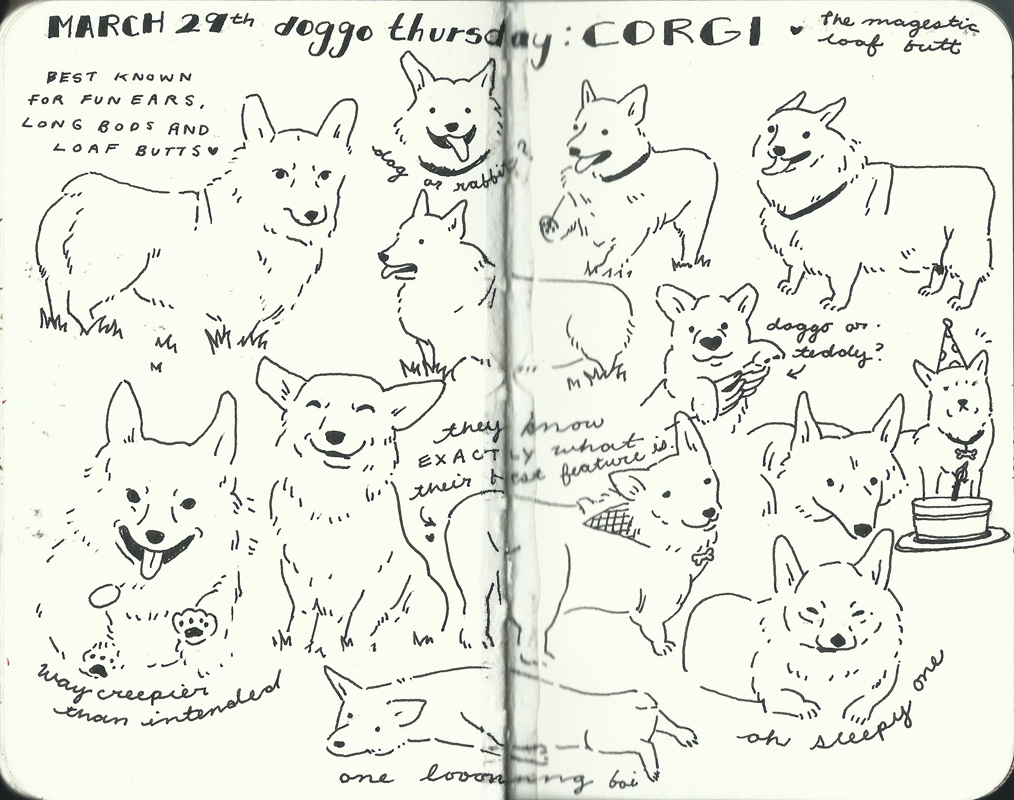 MARCH 29th doggo thursday: CORGI ♥
the magestic
loaf butt
BEST KNOWN
FOR FUN EARS,
LONG BODS AND
LOAF BUTTS♥
dog or rabbit?
doggo or
teddy?
they know
EXACTLY what
their best feature is.
way creepier
than intended
oh sleepy one
one looonnng boi